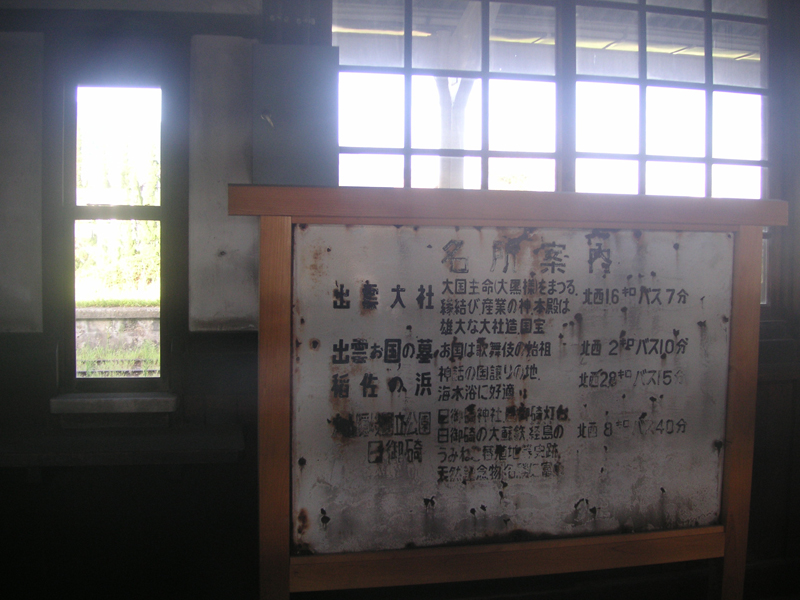 名所案内
出雲大社
大国主命(大黒様)をまつる、
縁結び産業の神、本殿は
雄大な大社造国宝
北西1.6キロバス7分
出雲お国の墓
お国は歌舞伎の始祖
北西 2キロバス10分
稲佐の浜
神話の国譲りの地、
海水浴に好適
北西2.8キロバス15分
立公園
日御碕
日御碕神社、日御碕灯台
日御碕の大蘇鉄、経島の
うみねこ
天然記念物
北西 8キロバス40分